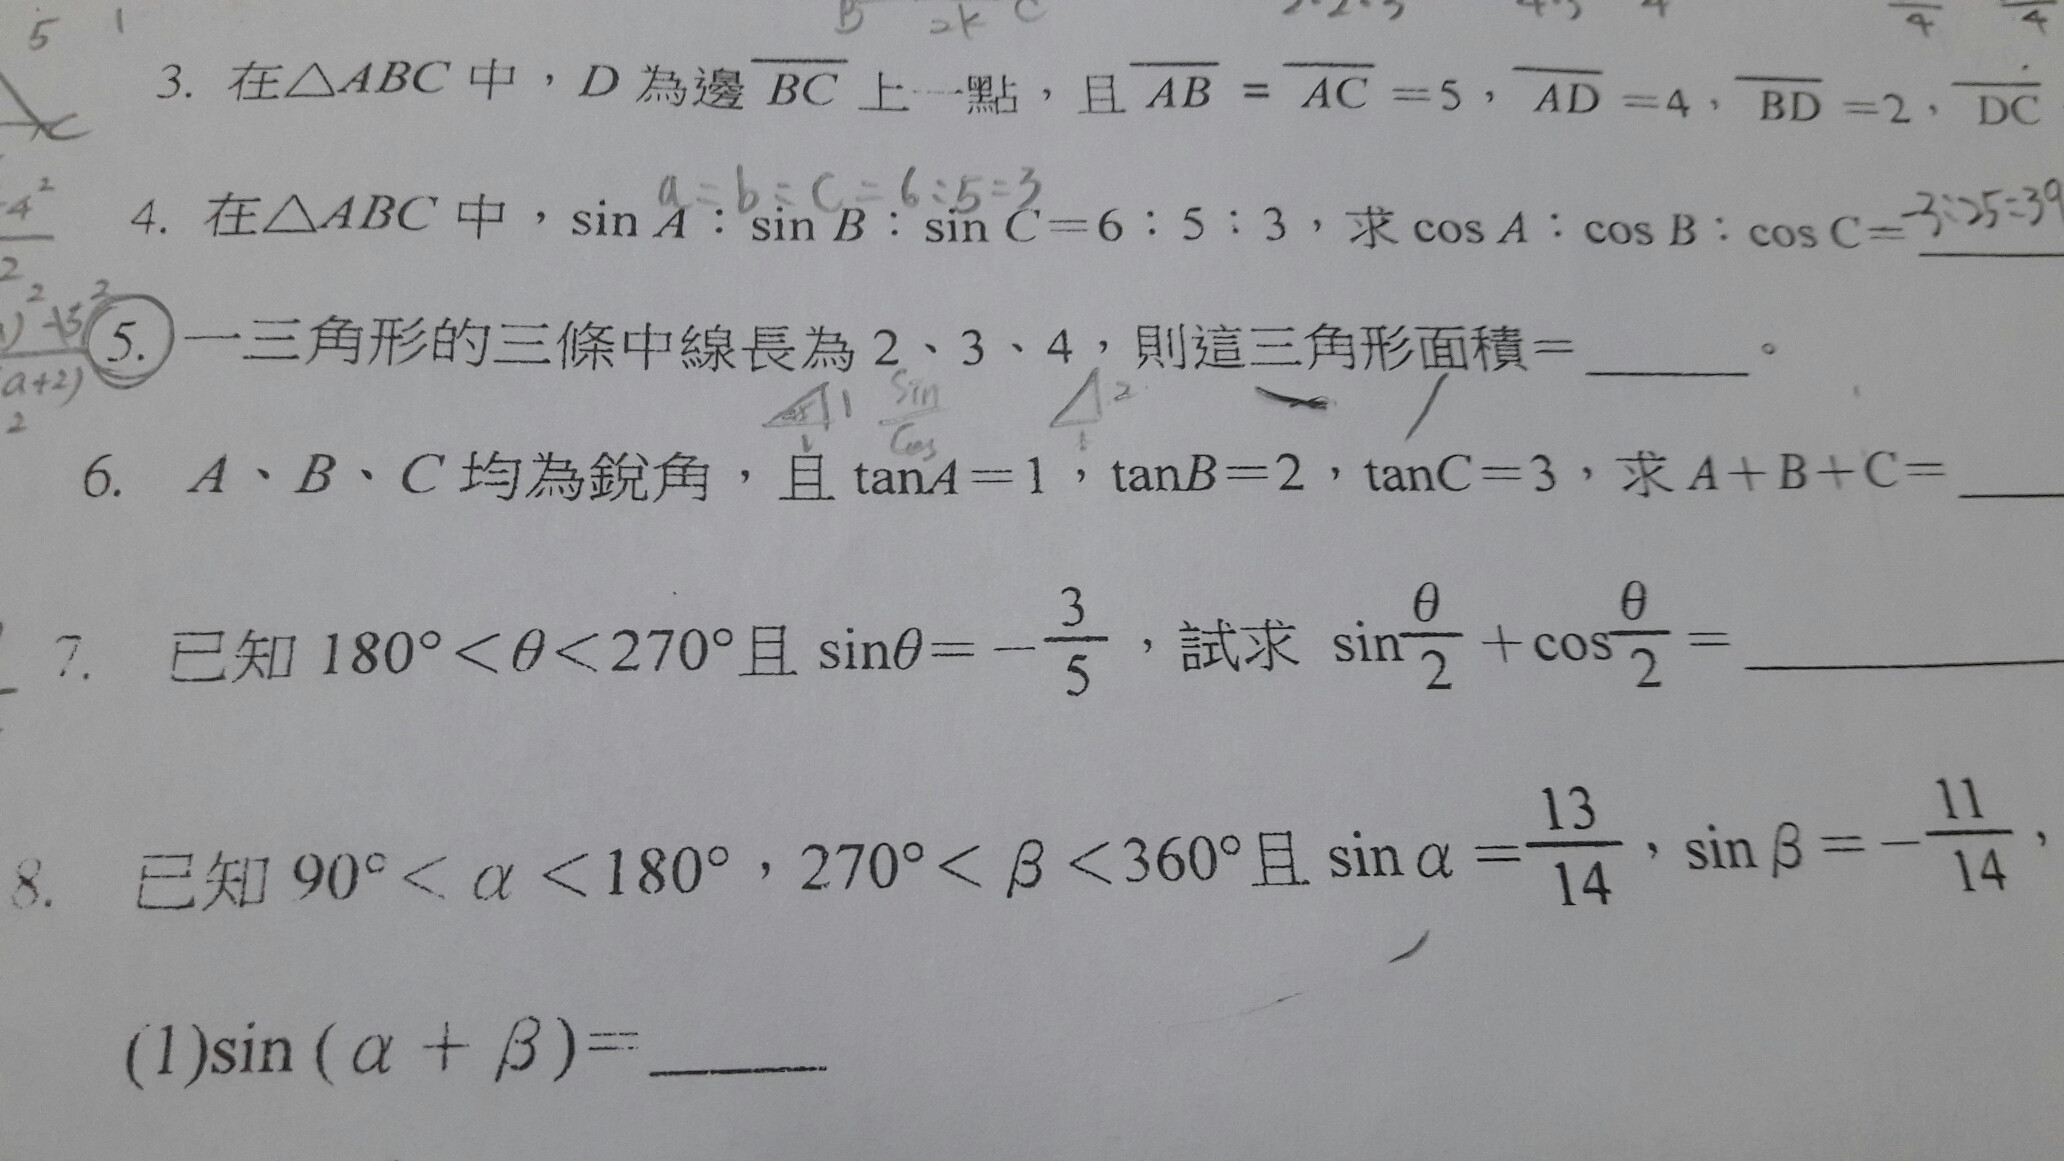 5 1 B 2k C
3. 在△ABC 中，D 為邊 BC 上一點，且 AB = AC =5，AD =4，BD =2，DC
a=b=c=6:5=3
4. 在△ABC 中，sin A：sin B：sin C=6：5：3，求 cos A：cos B：cos C= -3:25:39
5. 一三角形的三條中線長為 2、3、4，則這三角形面積=____。
1 sin/cos 2
6. A、B、C 均為銳角，且 tanA=1，tanB=2，tanC=3，求 A+B+C=____
7. 已知 180°<θ<270°且 sinθ= -3/5，試求 sin θ/2 +cos θ/2 =____
8. 已知 90°< α <180°，270°< β <360°且 sin α = 13/14，sin β = -11/14，
(1)sin ( α + β )=____